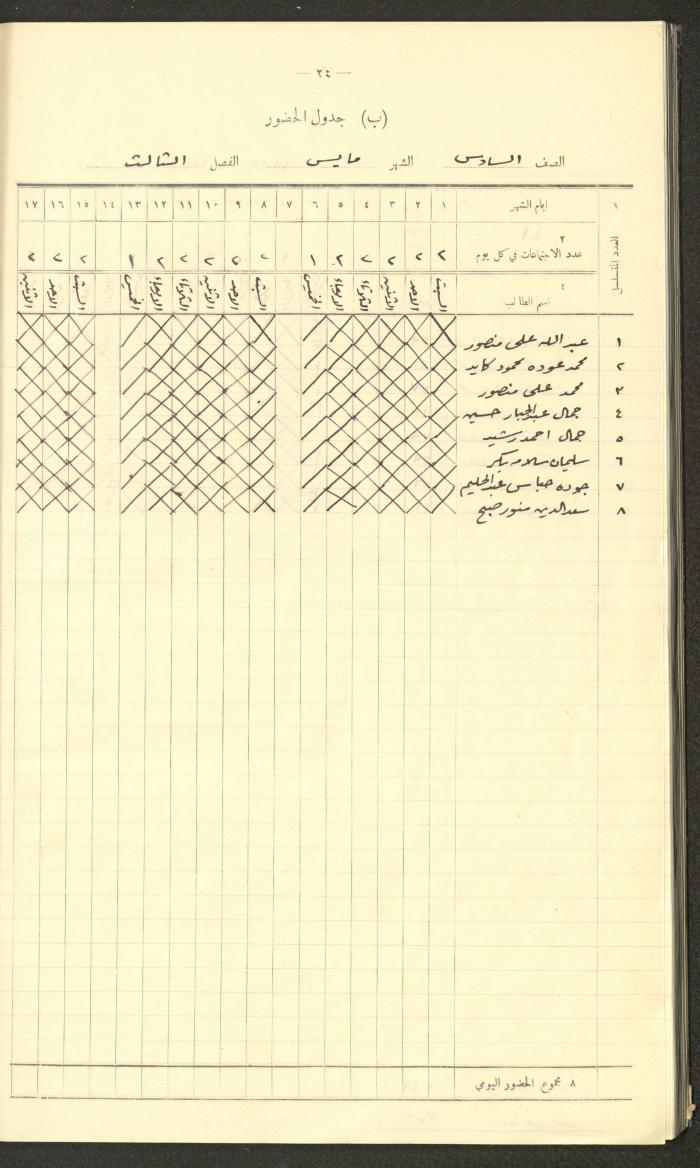 — ٢٤ —
(ب) جدول الحضور
الصف السادس الشهر مايس الفصل الثالث
١ ايام الشهر ١ ٢ ٣ ٤ ٥ ٦ ٧ ٨ ٩ ١٠ ١١ ١٢ ١٣ ١٤ ١٥ ١٦ ١٧
العدد المتسلسل
٢
عدد الاجتماعات في كل يوم ٢ ٢ ٢ ٢ ٢ ١ ٢ ٢ ٢ ٢ ٢ ١ ٢ ٢ ٢
٤
اسم الطالب السبت الاحد الاثنين الثلاثاء الاربعاء الخميس السبت الاحد الاثنين الثلاثاء الاربعاء الخميس السبت الاحد الاثنين
١ عبدالله علي منصور
٢ محمد عوده محمود كايد
٣ محمد علي منصور
٤ جمال عبدالجبار حسين
٥ جمال احمد رشيد
٦ سليمان سلامه بكر
٧ جوده عباس عبدالحليم
٨ سعدالدين منور صبح
٨ مجموع الحضور اليومي